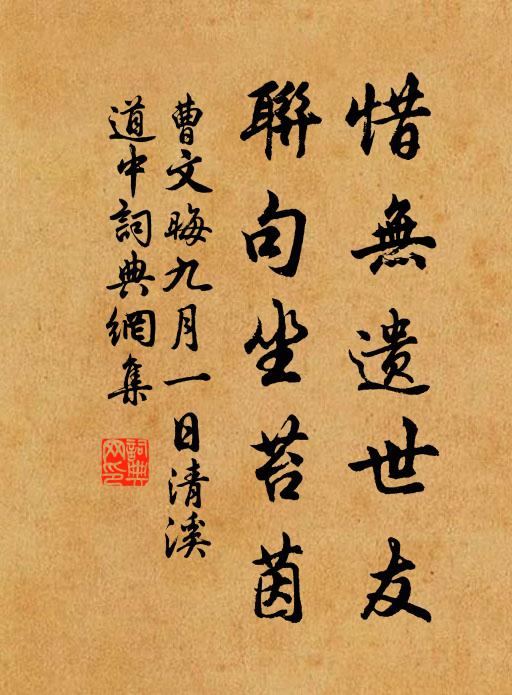 惜無遺世友
聯句坐苔茵
曹文晦九月一日清溪
道中詞典網集
詞典網印